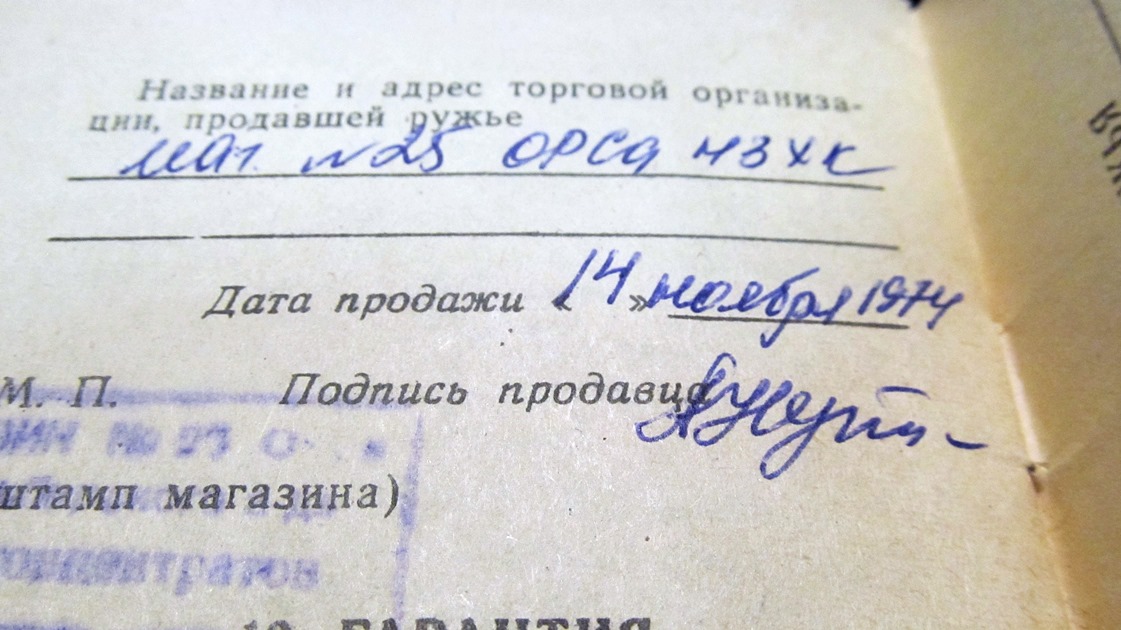 Название и адрес торговой организа-
ции, продавшей ружье
маг. №25 ОРСа НЗХК
Дата продажи «14» ноября 1974
М. П. Подпись продавца
штамп магазина)
концентратов
ГАРАНТИЯ